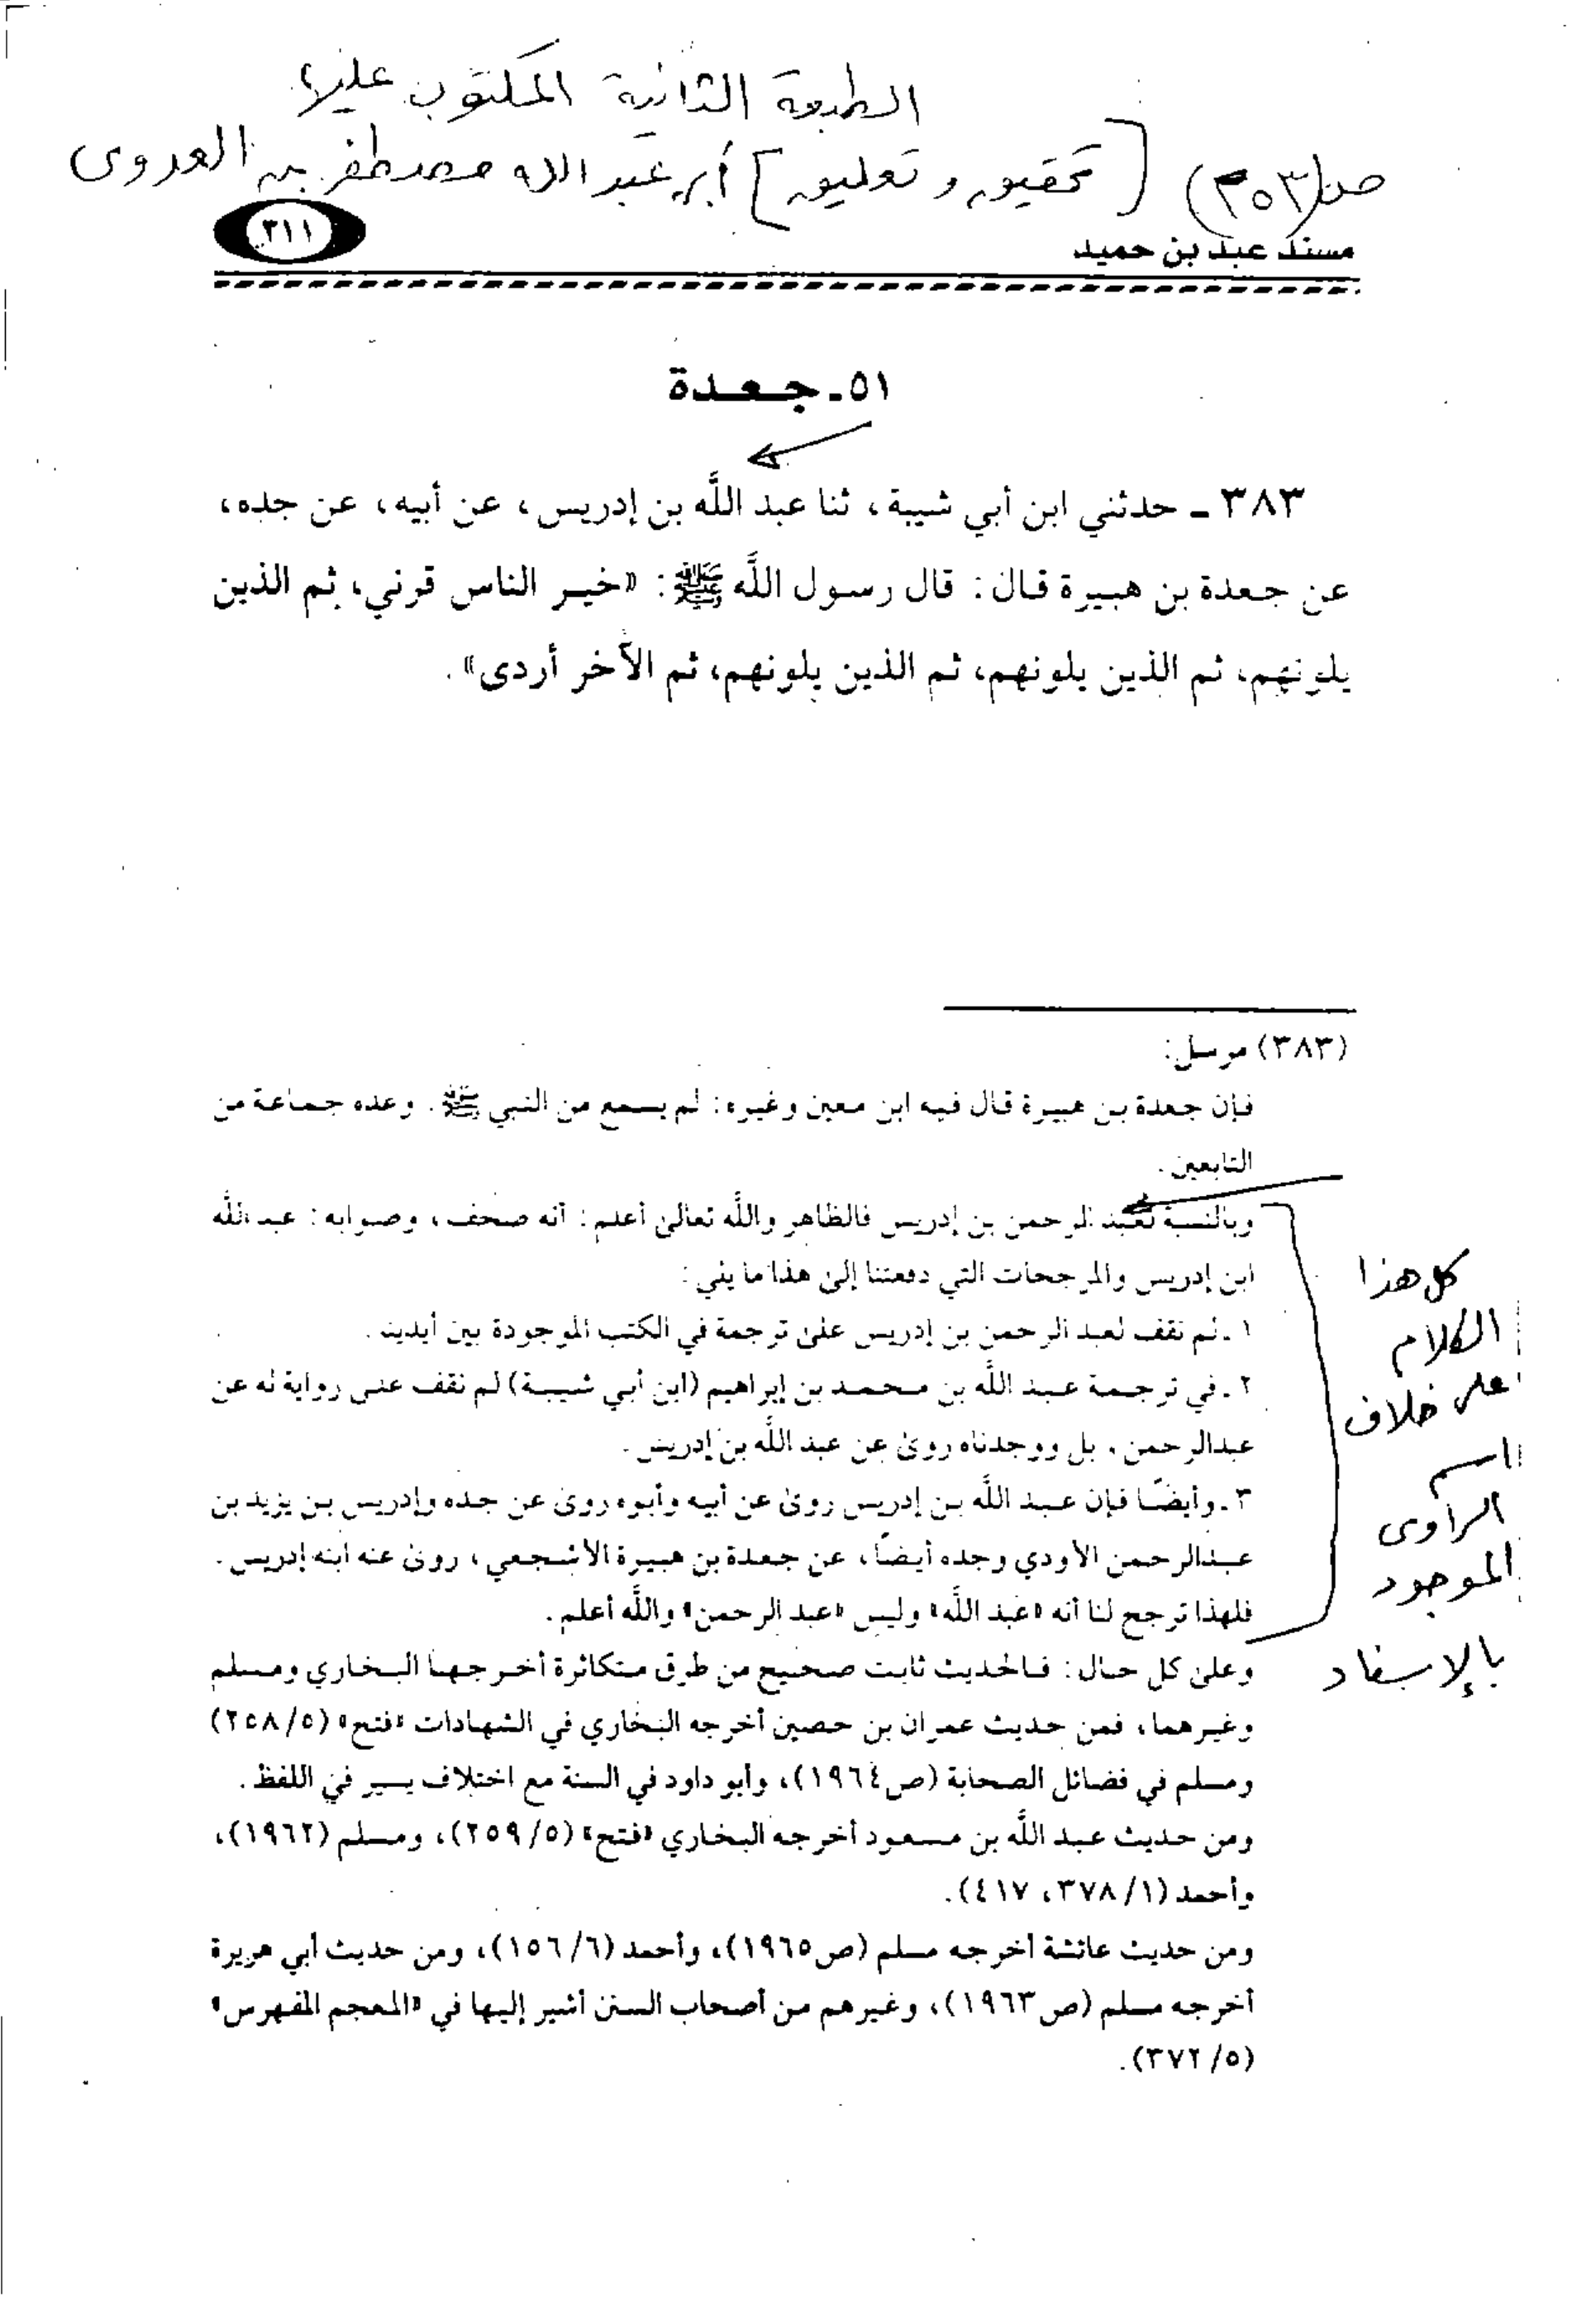 الطبعة الثانية المكتوب عليها
ص (٣٥٣) [تحقيق وتعليق] أبى عبد الله مصطفى بن العدوى
٣١١
مسند عبد بن حميد
٥١ـ جـعـدة
٣٨٣ ـ حدثني ابن أبي شيبة، ثنا عبد اللَّه بن إدريس، عن أبيه، عن جده،
عن جـعدة بن هبيرة قـال: قال رسول اللَّه ﷺ: «خيـر الناس قرني، ثم الذين
يلونهم، ثم الذين يلونهم، ثم الذين يلونهم، ثم الآخر أردى».
(٣٨٣) مرسل:
فإن جعدة بن هبيرة قال فيه ابن معين وغيره: لم يسمع من النبي ﷺ. وعده جماعة من
التابعين.
وبالنسبة لعبد الرحمن بن إدريس فالظاهر واللَّه تعالى أعلم: أنه صحف، وصوابه: عبد اللَّه
ابن إدريس والمرجحات التي دفعتنا إلى هذا ما يلي:
١ـ لم نقف لعبد الرحمن بن إدريس على ترجمة في الكتب الموجودة بين أيدينا.
٢ـ في ترجمة عبد اللَّه بن محمد بن إبراهيم (ابن أبي شيبة) لم نقف على رواية له عن
عبدالرحمن، بل ووجدناه روى عن عبد اللَّه بن إدريس.
٣ـ وأيضًا فإن عبد اللَّه بن إدريس روى عن أبيه وأبوه روى عن جده وإدريس بن يزيد بن
عبدالرحمن الأودي وجده أيضًا، عن جعدة بن هبيرة الأشجعي، روى عنه ابنه إدريس.
فلهذا ترجح لنا أنه «عبد اللَّه» وليس «عبد الرحمن» واللَّه أعلم.
وعلى كل حال: فالحديث ثابت صحيح من طرق متكاثرة أخرجها البخاري ومسلم
وغيرهما، فمن حديث عمران بن حصين أخرجه البخاري في الشهادات «فتح» (٢٥٨/٥)
ومسلم في فضائل الصحابة (ص١٩٦٤)، وأبو داود في السنة مع اختلاف يسير في اللفظ.
ومن حديث عبد اللَّه بن مسعود أخرجه البخاري «فتح» (٢٥٩/٥)، ومسلم (١٩٦٢)،
وأحمد (٣٧٨/١، ٤١٧).
ومن حديث عائشة أخرجه مسلم (ص١٩٦٥)، وأحمد (١٥٦/٦)، ومن حديث أبي هريرة
أخرجه مسلم (ص١٩٦٣)، وغيرهم من أصحاب السنن أشير إليها في «المعجم المفهرس»
(٣٧٢/٥).
كل هذا
الكلام
على خلاف
اسم
الراوى
الموجود
بالإسناد